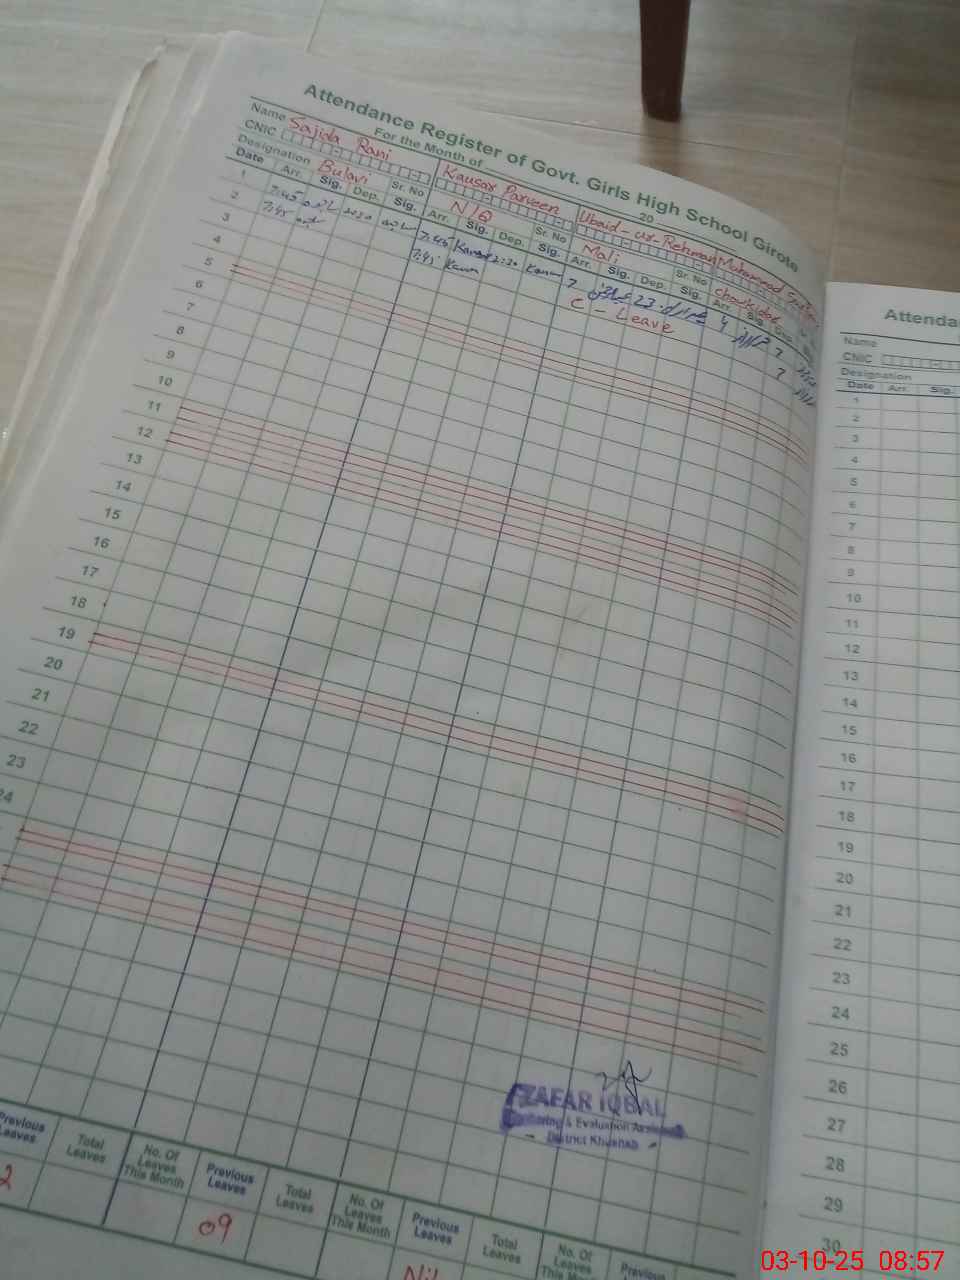 Attendance Register of Govt. Girls High School Girote
For the Month of 20
Name Sajida Rani Kausar Parveen Ubaid-ur-Rehman Muhammad
CNIC
Designation Bulavi Sr. No N/Q Sr. No Mali Sr. No Chowkidar
Date Arr. Sig. Dep. Sig. Arr. Sig. Dep. Sig. Arr. Sig. Dep. Sig. Arr. Sig. Dep.
1 7:45
2 7:45 7:45 Kausar 2:30 Kausar
3 7:45 Kausar 7
C - Leave 7
4
5
6
7
8
9
10
11
12
13
14
15
16
17
18
19
20
21
22
23
24
ZAFAR IQBAL
Monitoring & Evaluation Assistant
District Khushab
Previous Leaves Total Leaves No. Of Leaves This Month Previous Leaves Total Leaves No. Of Leaves This Month Previous Leaves Total Leaves No. Of Leaves This Month
2 09 Nil
Attenda
Name
CNIC
Designation
Date Arr. Sig.
1
2
3
4
5
6
7
8
9
10
11
12
13
14
15
16
17
18
19
20
21
22
23
24
25
26
27
28
29
30
03-10-25 08:57